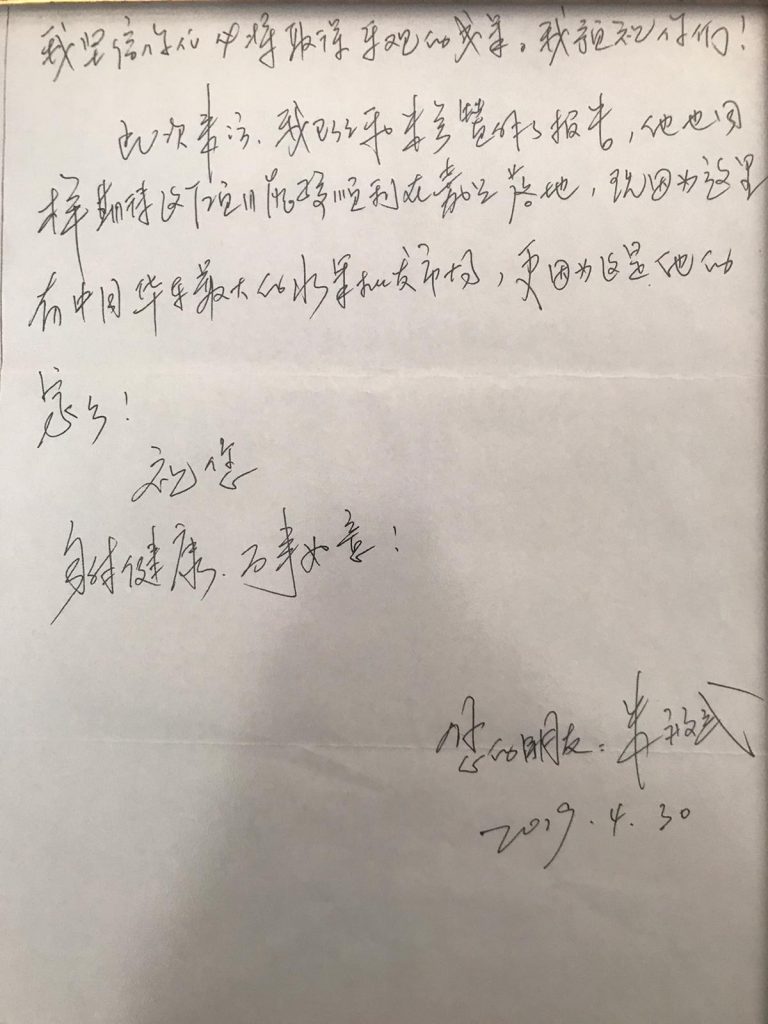 我坚信你们必将取得乐观的成果。我预祝你们!
此次来访,我已经和 做了报告,他也同
样期待这个项目能够顺利在嘉兴落地,既因为这里
有中国华东最大的水果批发市场,更因为这是他的
家乡!
祝您
身体健康、万事如意!
您的朋友:
2019.4.30